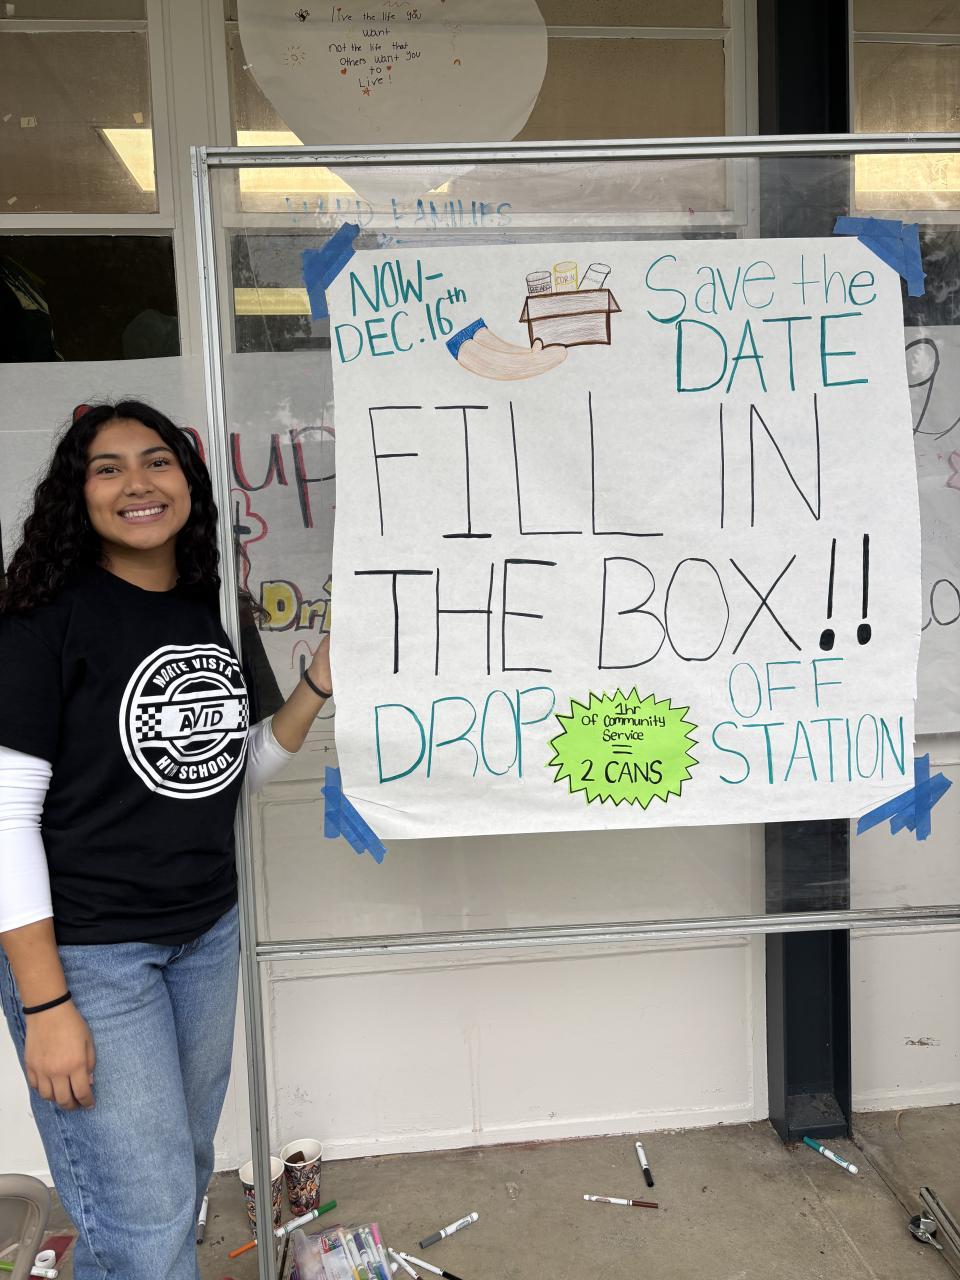 Live the life you
want
not the life that
others want you
to
Live!
HARD FAMILIES
NOW-
DEC. 16th
BEANS
CORN
Save the
DATE
FILL IN
THE BOX!!
DROP
OFF
STATION
1hr
OF Community
Service
=
2 CANS
up
Dri
NORTE VISTA
AVID
HIGH SCHOOL